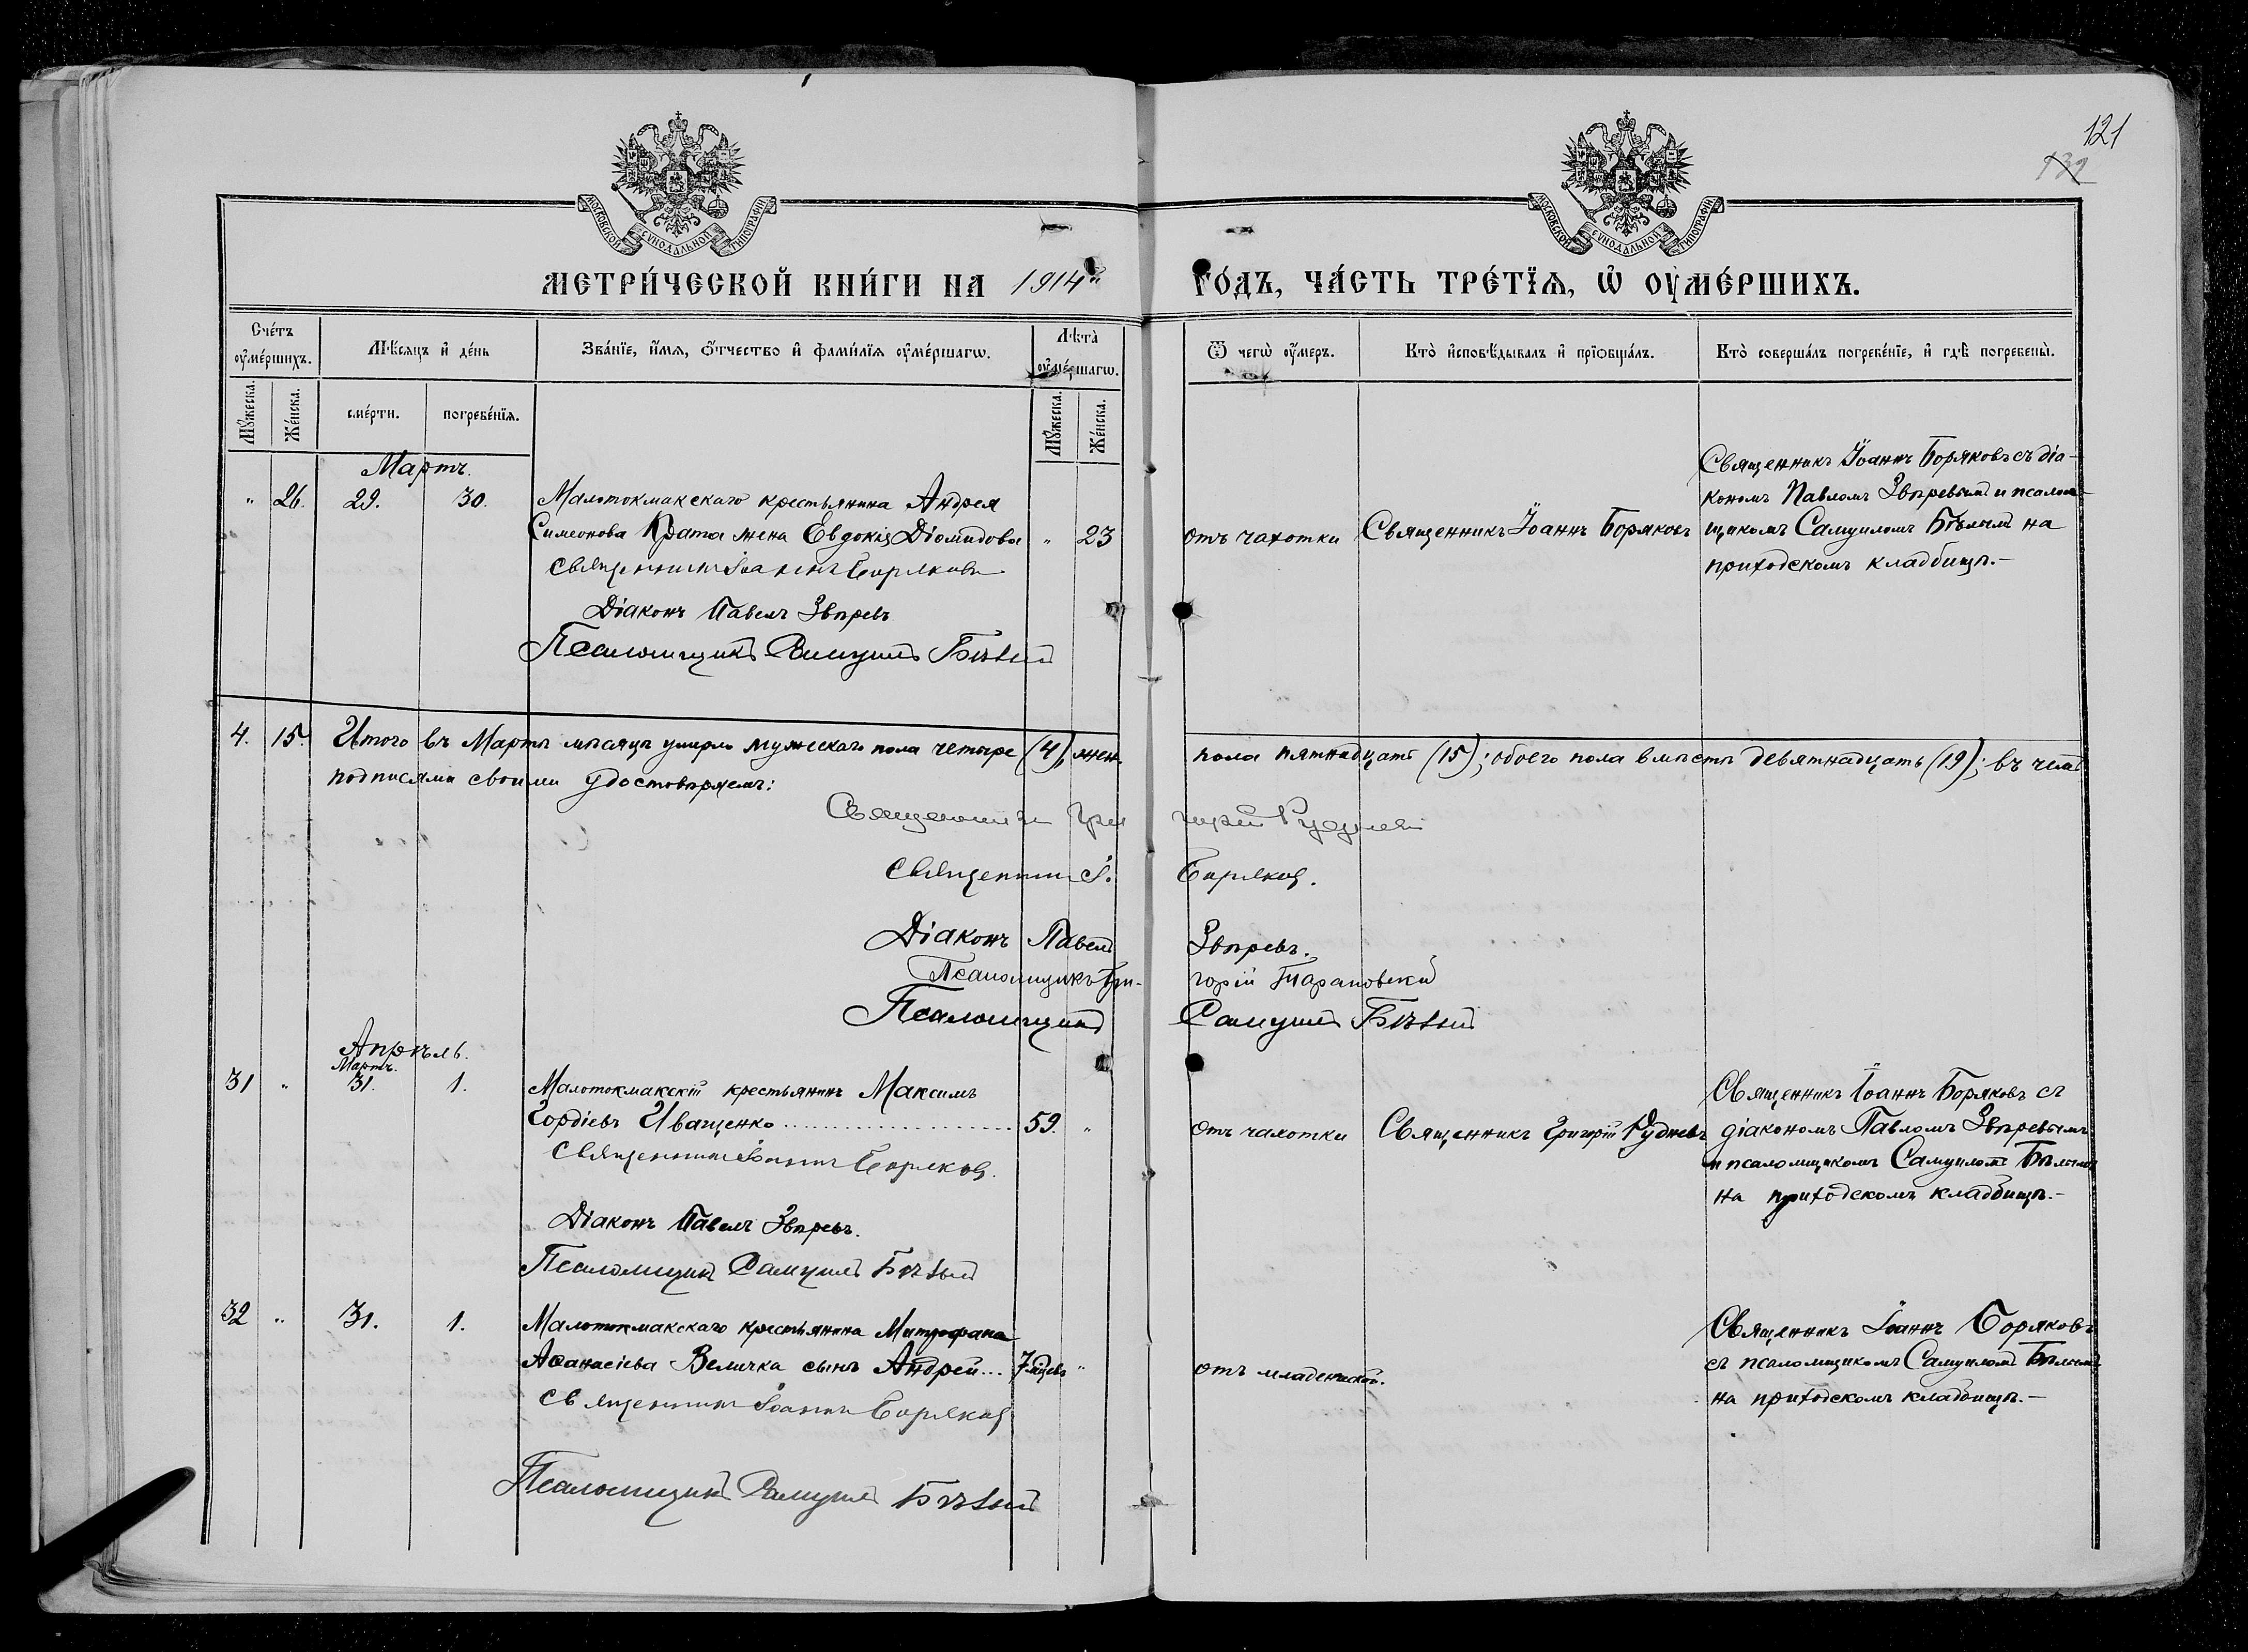 121
132
МОСКОВСКОЙ СУНОДАЛЬНОЙ ТИПОГРАФІИ
МОСКОВСКОЙ СУНОДАЛЬНОЙ ТИПОГРАФІИ
МЕТРИ́ЧЕСКОЙ КНИ́ГИ НА 1914й ГО́ДЪ, ЧА́СТЬ ТРЕ́ТЇѦ, Ѡ҆ ОУ҆МЕ́РШИХЪ.
Сче́тъ оу҆ме́ршихъ.
Мѣ́сяцъ и҆ де́нь
Зва́нїе, и҆́мя, ѻ҆́тчество и҆ фами́лїя оу҆ме́ршагѡ.
Лѣта̀ оу҆ме́ршагѡ.
Ѿ чегѡ̀ оу҆́меръ.
Кто̀ и҆сповѣ́дывалъ и҆ прїѻбща́лъ.
Кто̀ соверша́лъ погребе́нїе, и҆ гдѣ̀ погребены̀.
Мꙋ́жеска. Же́нска. сме́рти. погребе́нїя. Мꙋ́жеска. Же́нска.
Мартъ.
„ 26. 29. 30. Малотокмакскаго крестьянина Андрея
Симеонова Крата жена Евдокія Діомидова „ 23
Священникъ Іоаннъ Боряковъ
Діаконъ Павелъ Звѣревъ
Псаломщикъ Самуилъ Бѣлый
отъ чахотки
Священникъ Іоаннъ Боряковъ
Священникъ Іоаннъ Боряковъ съ діа-
кономъ Павломъ Звѣревымъ и псалом-
щикомъ Самуиломъ Бѣлымъ на
приходскомъ кладбищѣ.–
4. 15. Итого въ Мартѣ мѣсяцѣ умерло мужескаго пола четыре (4), жен. пола пятнадцать (15); обоего пола вмѣстѣ девятнадцать (19); въ чемъ
подписями своими удостовѣряемъ:
Священникъ Григорій Рудневъ
Священникъ І. Боряковъ.
Діаконъ Павелъ Звѣревъ.
Псаломщикъ Гри-горій Тарановскій
Псаломщикъ Самуилъ Бѣлый
Апрѣль.
Мартъ.
31 „ 31. 1. Малотокмакскій крестьянинъ Максимъ
Гордіевъ Иващенко .................... 59. „
Священникъ Іоаннъ Боряковъ.
Діаконъ Павелъ Звѣревъ.
Псаломщикъ Самуилъ Бѣлый
отъ чахотки
Священникъ Григорій Рудневъ
Священникъ Іоаннъ Боряковъ съ
діакономъ Павломъ Звѣревымъ
и псаломщикомъ Самуиломъ Бѣлымъ
на приходскомъ кладбищѣ.–
32 „ 31. 1. Малотокмакскаго крестьянина Митрофана
Аѳанасіева Величка сынъ Андрей... 7 мѣсцевъ „
Священникъ Іоаннъ Боряковъ
Псаломщикъ Самуилъ Бѣлый
отъ младенческой.
Священникъ Іоаннъ Боряковъ
съ псаломщикомъ Самуиломъ Бѣлымъ
на приходскомъ кладбищѣ.–